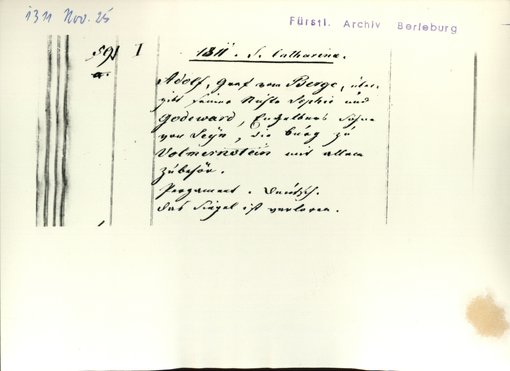 1311 Nov. 25
Fürstl. Archiv Berleburg
591 I 1311. S. Catharina.
a.
Adolf, Graf von Berge, über-
gibt seiner Nifte Sophie und
Godeward, Engelbers Sohne
von Seyn, die Burg zu
Volmernstein mit allem
Zubehör.
Pergament. Deutsch.
Das Siegel ist verloren.